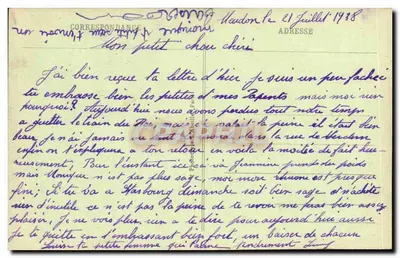 CORRESPONDANCE
ADRESSE
Meudon le 21 Juillet 1938
Mon petit chou chéri
J'ai bien reçue ta lettre d'hier je suis un peu fachée
tu embrasse bien les petites et mes Parents mais moi rien
pourquoi? Aujourd'hui nous avons perdus tout notre temps
a guetter le train du et malgré la pluie il était bien
beau je n'ai jamais vu dans la rue de Verdun
enfin on t'expliquera a ton retour en voilà la moitié de fait heu-
reusement, Pour l'instant ça va Jeannine prends du poids
mais Monique n'est pas plus sage moi mon rhume est presque
fini, Si tu va a dimanche soit bien sage n'achète
rien d'inutile ce n'est pas la peine de te revoir me fais bien assez
plaisir, Je ne vois plus rien a te dire pour aujourd'hui aussi
je te quitte en t'embrassant bien fort, un baiser de chacun
ta petite femme qui t'aime Tendrement